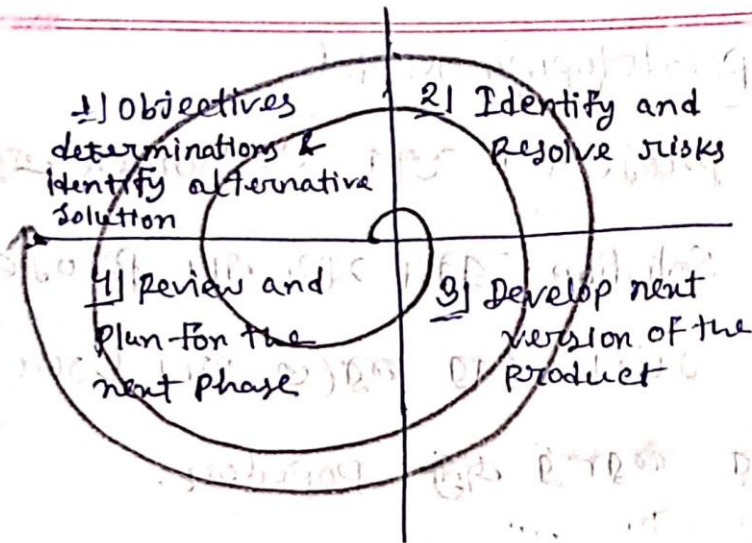 1] Objectives
determinations &
identify alternative
solution
2] Identify and
Resolve risks
4] Review and
Plan for the
next phase
3] Develop next
version of the
product